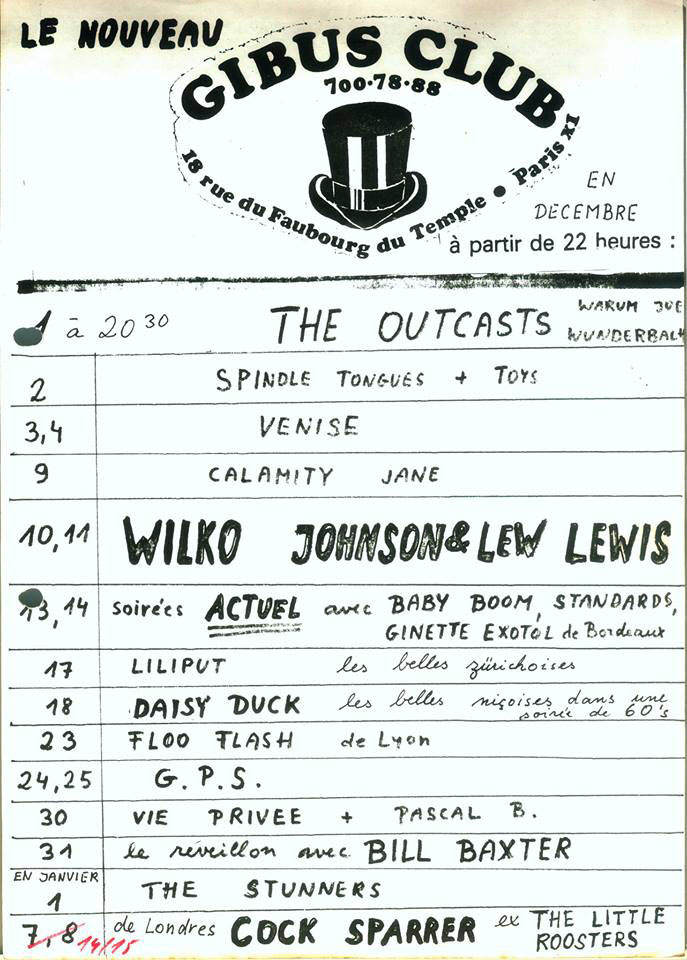 LE NOUVEAU
GIBUS CLUB
700·78·88
18 rue du Faubourg du Temple • Paris XI
EN
DECEMBRE
à partir de 22 heures :
1 à 20 30 THE OUTCASTS WARUM JOE
WUNDERBACH
2 SPINDLE TONGUES + TOYS
3,4 VENISE
9 CALAMITY JANE
10,11 WILKO JOHNSON & LEW LEWIS
13,14 soirées ACTUEL avec BABY BOOM, STANDARDS,
GINETTE EXOTOL de Bordeaux
17 LILIPUT les belles zürichoises
18 DAISY DUCK les belles niçoises dans une
soirée de 60's
23 FLOO FLASH de Lyon
24,25 G.P.S.
30 VIE PRIVEE + PASCAL B.
31 le réveillon avec BILL BAXTER
EN JANVIER
1 THE STUNNERS
7,8 14/15 de Londres COCK SPARRER ex THE LITTLE
ROOSTERS